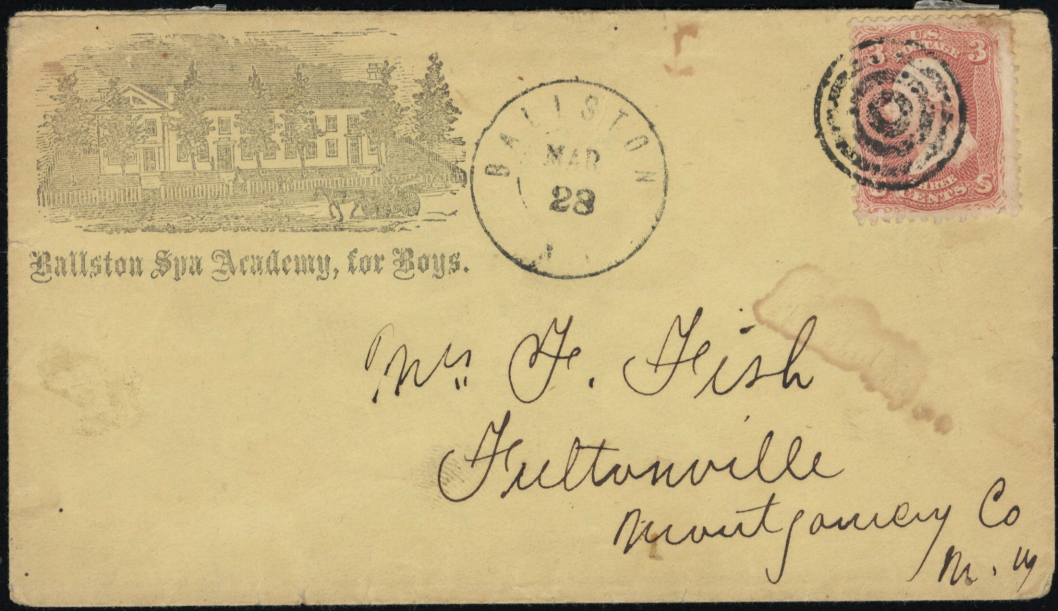 Ballston Spa Academy, for Boys.
BALLSTON
MAR
28
U.S.
3 3
THREE
CENTS
Mrs. F. Fish
Fultonville
Montgomery Co
N. Y